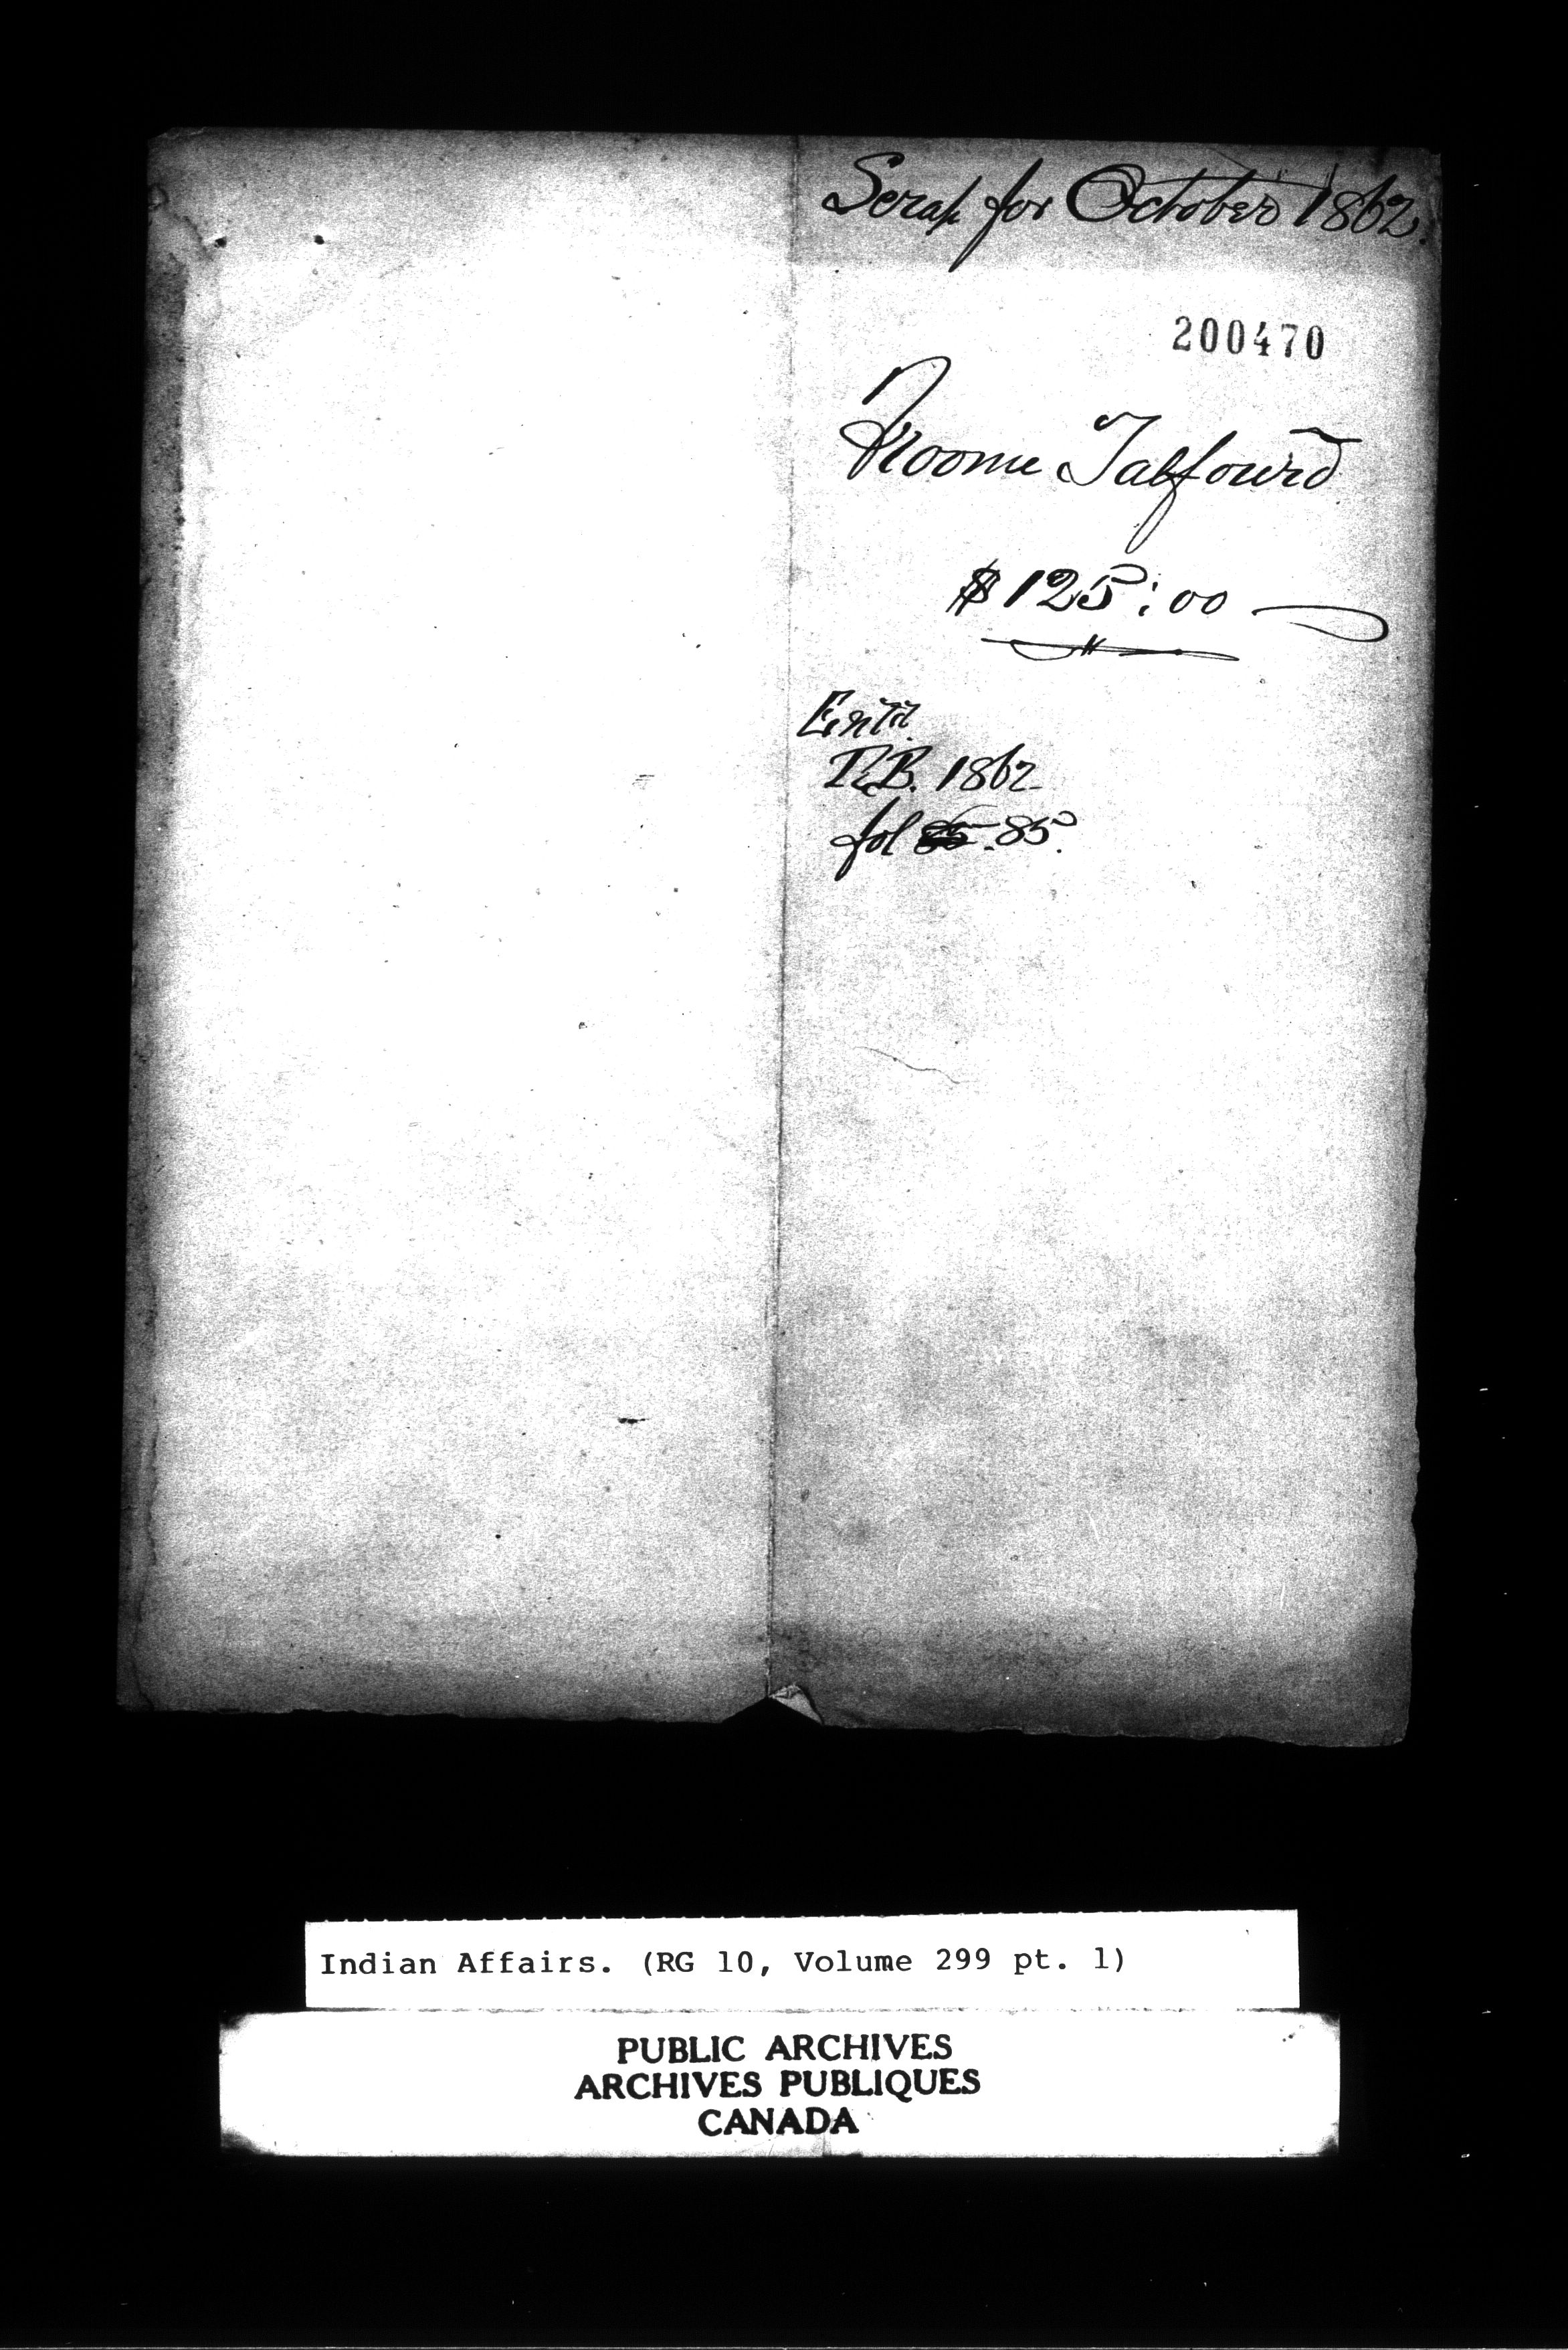 Scrap for October 1862.
200470
Froome Talfourd
$125:00
Entd.
R.B. 1862
fol 85.
Indian Affairs. (RG 10, Volume 299 pt. 1)
PUBLIC ARCHIVES
ARCHIVES PUBLIQUES
CANADA